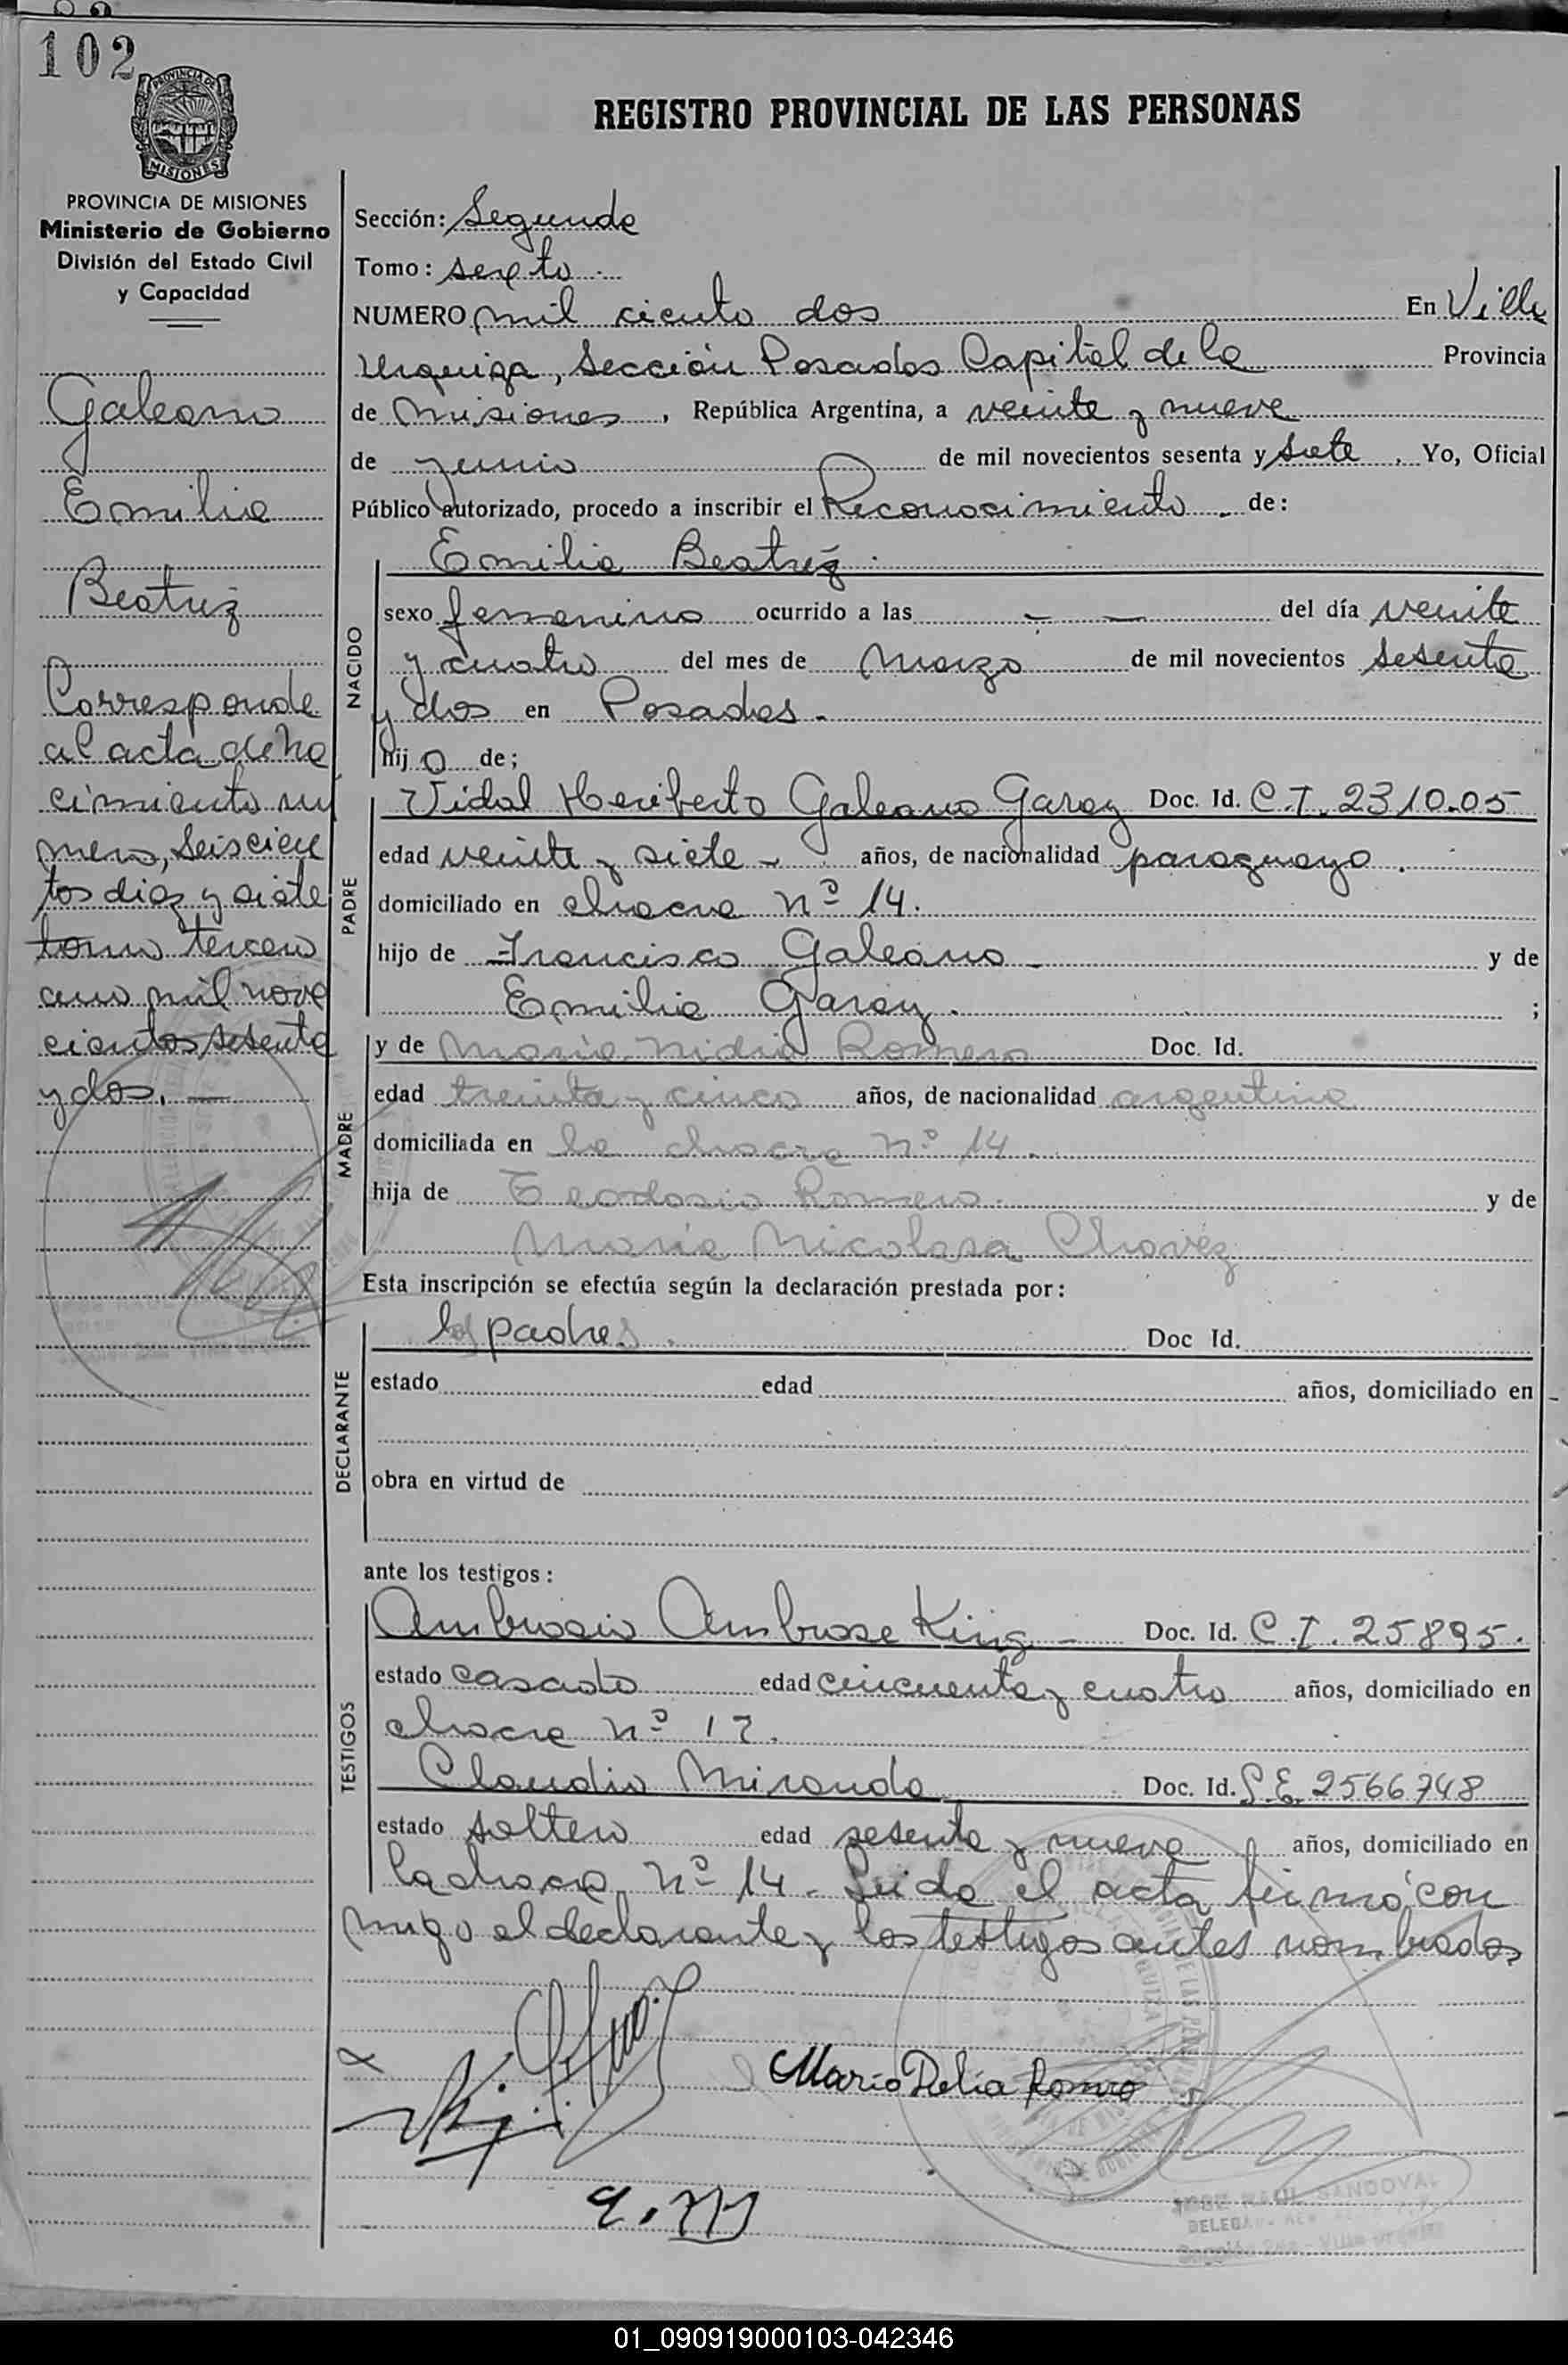 102
PROVINCIA DE
MISIONES
REGISTRO PROVINCIAL DE LAS PERSONAS
PROVINCIA DE MISIONES
Ministerio de Gobierno
División del Estado Civil
y Capacidad
Galeano
Emilia
Beatriz
Corresponde
al acta de na
cimiento nu
mero, Seiscien
tos diez y siete
tomo tercero
año mil nove
cientos sesenta
y dos. —
Sección: Segunda
Tomo: sexto
NUMERO mil ciento dos En Villa
Urquiza, Sección Posadas Capital de la Provincia
de Misiones, República Argentina, a veinte y nueve
de junio de mil novecientos sesenta y siete. Yo, Oficial
Público autorizado, procedo a inscribir el Reconocimiento de:
Emilia Beatriz.
NACIDO
sexo femenino ocurrido a las - — del día veinte
y cuatro del mes de Marzo de mil novecientos sesenta
y dos en Posadas.
hij a de;
PADRE
Vidal Heriberto Galeano Garay Doc. Id. C.I. 2310.05
edad veinte y siete - años, de nacionalidad paraguayo.
domiciliado en chacra nº 14.
hijo de Francisco Galeano y de
Emilia Garay. ;
MADRE
y de María Nidia Romero Doc. Id.
edad treinta y cinco años, de nacionalidad argentina
domiciliada en la chacra nº 14.
hija de Teodosio Romero. y de
María Nicolasa Chavéz
Esta inscripción se efectúa según la declaración prestada por:
DECLARANTE
los padres. Doc Id.
estado edad años, domiciliado en
obra en virtud de
ante los testigos:
TESTIGOS
Ambrosio Ambrose King - Doc. Id. C.I. 25895.
estado casado edad cincuenta y cuatro años, domiciliado en
chacra nº 17.
Claudio Miranda Doc. Id. L.E. 2566748
estado soltero edad sesenta y nueve años, domiciliado en
la chacra nº 14. Leida el acta firmó con
migo el declarante y los testigos antes nombrados
María Delia Romero
JOSE RAUL SANDOVAL
01_090919000103-042346